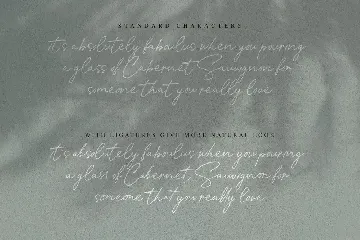 STANDARD CHARACTERS
it's absolutely fabulus when you pairing
a glass of Cabernet Sauvignon for
someone that you really love
WITH LIGATURES GIVE MORE NATURAL LOOK
it's absolutely fabulus when you pairing
a glass of Cabernet Sauvignon for
someone that you really love